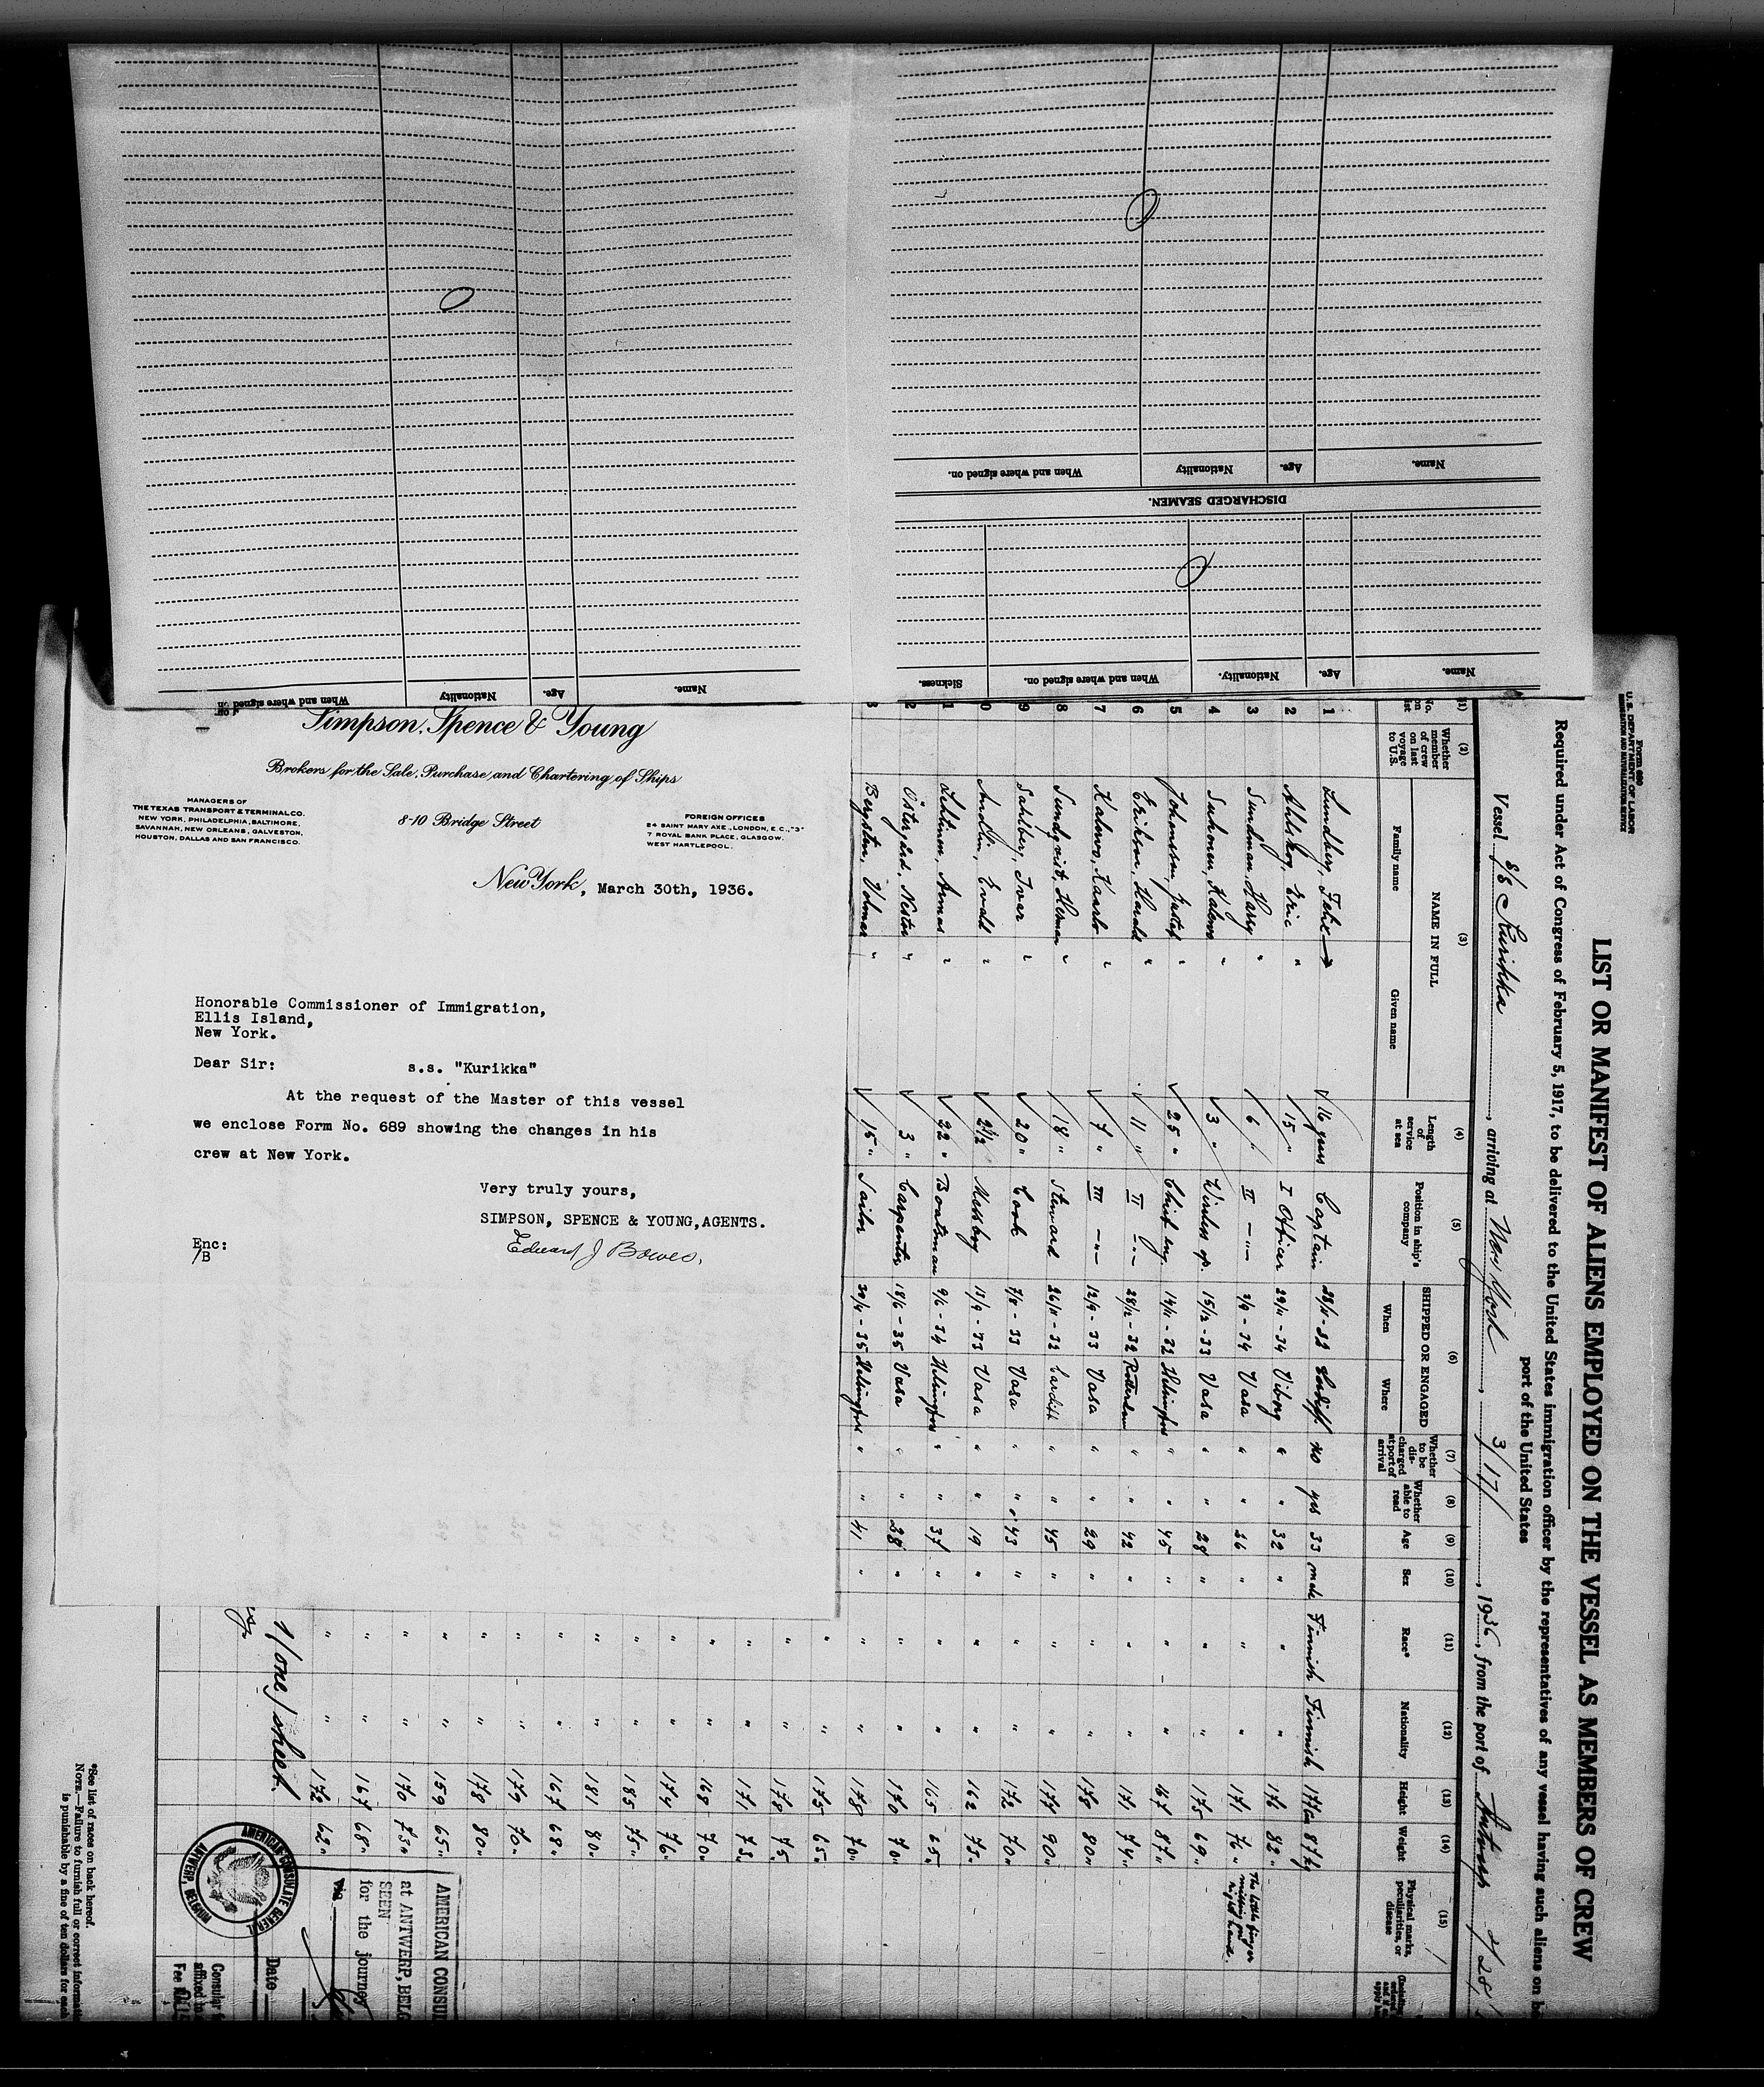 Name.
Age.
Nationality
When and where signed on.
DISCHARGED SEAMEN.
Name.
Age.
Nationality.
When and where signed on.
Sickness.
Name.
Age.
Nationality
When and where signed
Simpson, Spence & Young
Brokers for the Sale, Purchase and Chartering of Ships
MANAGERS OF
THE TEXAS TRANSPORT & TERMINAL CO.
NEW YORK, PHILADELPHIA, BALTIMORE,
SAVANNAH, NEW ORLEANS, GALVESTON,
HOUSTON, DALLAS AND SAN FRANCISCO.
8-10 Bridge Street
FOREIGN OFFICES
24 SAINT MARY AXE., LONDON, E.C., "3"
7 ROYAL BANK PLACE, GLASGOW.
WEST HARTLEPOOL.
New York, March 30th, 1936.
Honorable Commissioner of Immigration,
Ellis Island,
New York.
Dear Sir: s.s. "Kurikka"
At the request of the Master of this vessel
we enclose Form No. 689 showing the changes in his
crew at New York.
Very truly yours,
SIMPSON, SPENCE & YOUNG, AGENTS.
Edward J Bowes.
Enc:
/B
Form 680
U.S. DEPARTMENT OF LABOR
IMMIGRATION AND NATURALIZATION SERVICE
LIST OR MANIFEST OF ALIENS EMPLOYED ON THE VESSEL AS MEMBERS OF CREW
Required under Act of Congress of February 5, 1917, to be delivered to the United States immigration officer by the representatives of any vessel having such aliens on
port of the United States
Vessel S/S Kurikka, arriving at New York, 3/17/, 1936, from the port of Antwerp
(2) (3) (4) (5) (6) (7) (8) (9) (10) (11) (12) (13) (14) (15)
Whether member of crew on last voyage to U.S.
NAME IN FULL
Family name
Given name
Length of service at sea
Position in ship's company
SHIPPED OR ENGAGED
When
Where
Whether to be discharged at port of arrival
Whether able to read
Age
Sex
Race*
Nationality
Height
Weight
Physical marks, peculiarities, or disease
1 Lundberg, 16 years Captain Cardiff no yes 33 male Finnish Finnish 87 kg
2 Ahlskog, Eric " 15 " I Officer 29/11-34 Viborg " " 32 " " " 176 82 "
3 Sundman, Harry " 6 " II -"- 2/9-34 Vasa " " 26 " " " 171 76 " The little finger missing on right hand.
4 Suhonen, Kalervo " 3 " Wireless op. 15/12-33 Vasa " " 28 " " " 175 69 "
5 Johansson, Gustaf " 25 " Chief eng. 14/11-32 Helsingfors " " 45 " " " 167 87 "
6 Erikson, Harald " 11 " II -"- 28/12-32 Rotterdam " " 42 " " " 171 74 "
7 Kalervo, Kaarlo " 7 " III -"- 12/9-33 Vasa " " 29 " " " 178 80 "
8 Sundqvist, Herman " 18 " Steward 26/11-32 Cardiff " " 45 " " " 177 90 "
9 Sahlberg, Ivar " 20 " Cook 7/8-33 Vasa " " 43 " " " 172 70 "
Evald " 2 1/2 Messboy Vasa " " 19 " " " 162 75 "
Lehtinen, Armas " 22 " Boatsman 9/6-34 Helsingfors " " 37 " " " 165 65 "
2 Östergård, Nestor " 3 " Carpenter 18/6-35 Vasa " " 28 " " " 170 70 "
Bergsten, Volmar " 15 " Sailor Helsingfors " " 41 " " " 178 70 "
" " 175 65 "
" " 178 75 "
" " 171 73 "
" " 168 70 "
" " 174 76 "
" " 185 75 "
" " 181 80 "
" " 167 68 "
" " 179 70 "
" " 178 80 "
" " 159 65 "
" " 170 73 "
" " 167 68 "
" " 172 62 "
1/one/ sheet.
AMERICAN CONSUL
at ANTWERP, BELG
SEEN
for the journey
via
Date
AMERICAN CONSULATE GENERAL
ANTWERP, BELGIUM
Consular
affixed to
Fee No.
*See list of races on back hereof.
NOTE.—Failure to furnish full or correct
is punishable by a fine of ten dollars for each